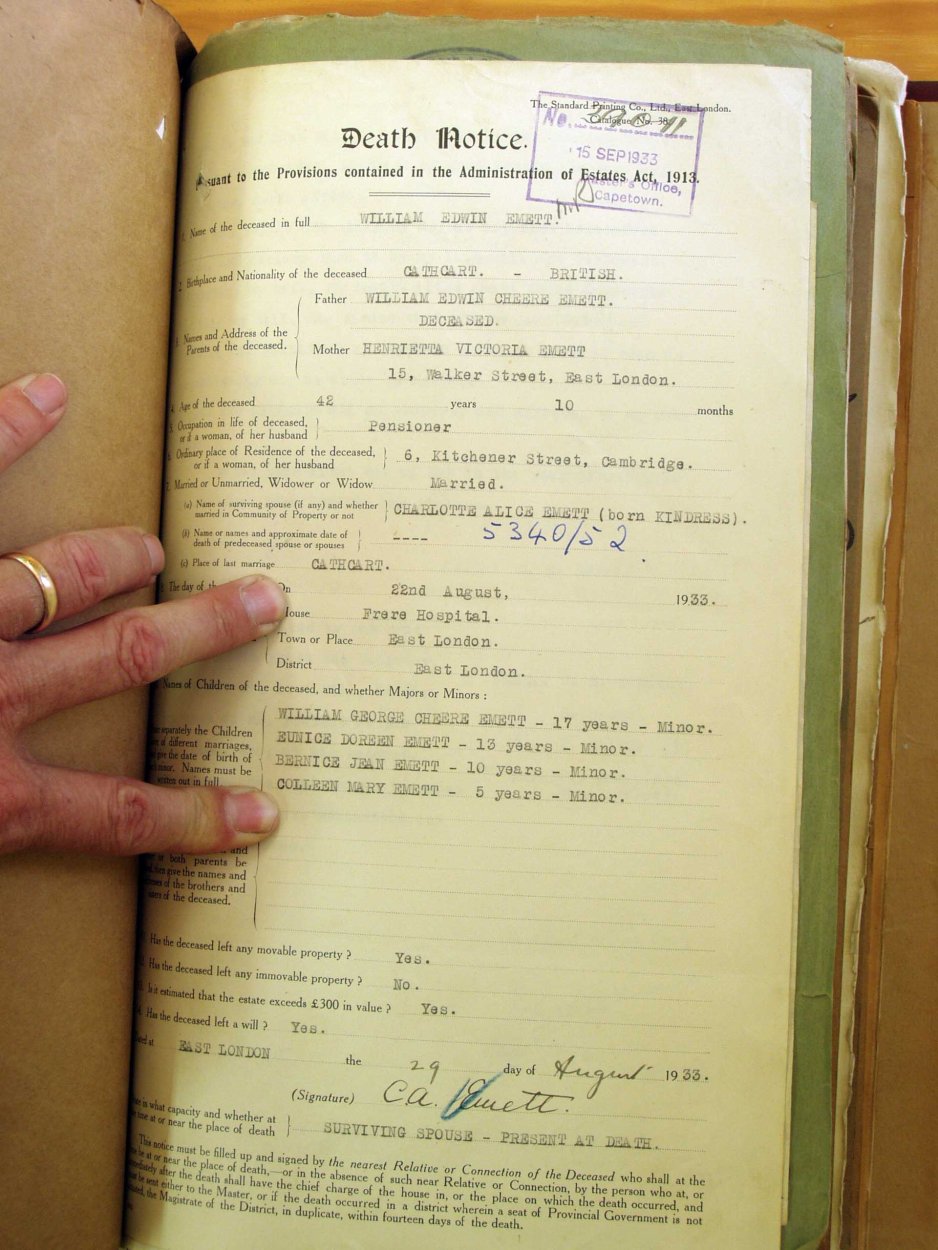 The Standard Printing Co., Ltd., East London.
Catalogue No. 38
No.
15 SEP 1933
Master's Office,
Capetown.
Death Notice.
suant to the Provisions contained in the Administration of Estates Act, 1913.
1. Name of the deceased in full WILLIAM EDWIN EMETT.
2. Birthplace and Nationality of the deceased CATHCART. - BRITISH.
3. Names and Address of the Parents of the deceased.
Father WILLIAM EDWIN CHEERE EMETT.
DECEASED.
Mother HENRIETTA VICTORIA EMETT
15, Walker Street, East London.
4. Age of the deceased 42 years 10 months
5. Occupation in life of deceased, or if a woman, of her husband Pensioner
6. Ordinary place of Residence of the deceased, or if a woman, of her husband 6, Kitchener Street, Cambridge.
7. Married or Unmarried, Widower or Widow Married.
(a) Name of surviving spouse (if any) and whether married in Community of Property or not CHARLOTTE ALICE EMETT (born KINDRESS).
(b) Name or names and approximate date of death of predeceased spouse or spouses ---- 5340/52
(c) Place of last marriage CATHCART.
The day of On 22nd August, 1933.
House Frere Hospital.
Town or Place East London.
District East London.
Names of Children of the deceased, and whether Majors or Minors :
separately the Children
of different marriages,
give the date of birth of
minor. Names must be
written out in full
WILLIAM GEORGE CHEERE EMETT - 17 years - Minor.
EUNICE DOREEN EMETT - 13 years - Minor.
BERNICE JEAN EMETT - 10 years - Minor.
COLLEEN MARY EMETT - 5 years - Minor.
and
both parents be
then give the names and
of the brothers and
of the deceased.
Has the deceased left any movable property ? Yes.
Has the deceased left any immovable property ? No.
Is it estimated that the estate exceeds £300 in value ? Yes.
Has the deceased left a will ? Yes.
Dated at EAST LONDON the 29 day of August 1933.
(Signature) C.A. Emett.
in what capacity and whether at
time at or near the place of death SURVIVING SPOUSE - PRESENT AT DEATH.
This notice must be filled up and signed by the nearest Relative or Connection of the Deceased who shall at the
be at or near the place of death,—or in the absence of such near Relative or Connection, by the person who at, or
immediately after the death shall have the chief charge of the house in, or the place on which the death occurred, and
must be sent either to the Master, or if the death occurred in a district wherein a seat of Provincial Government is not
the Magistrate of the District, in duplicate, within fourteen days of the death.